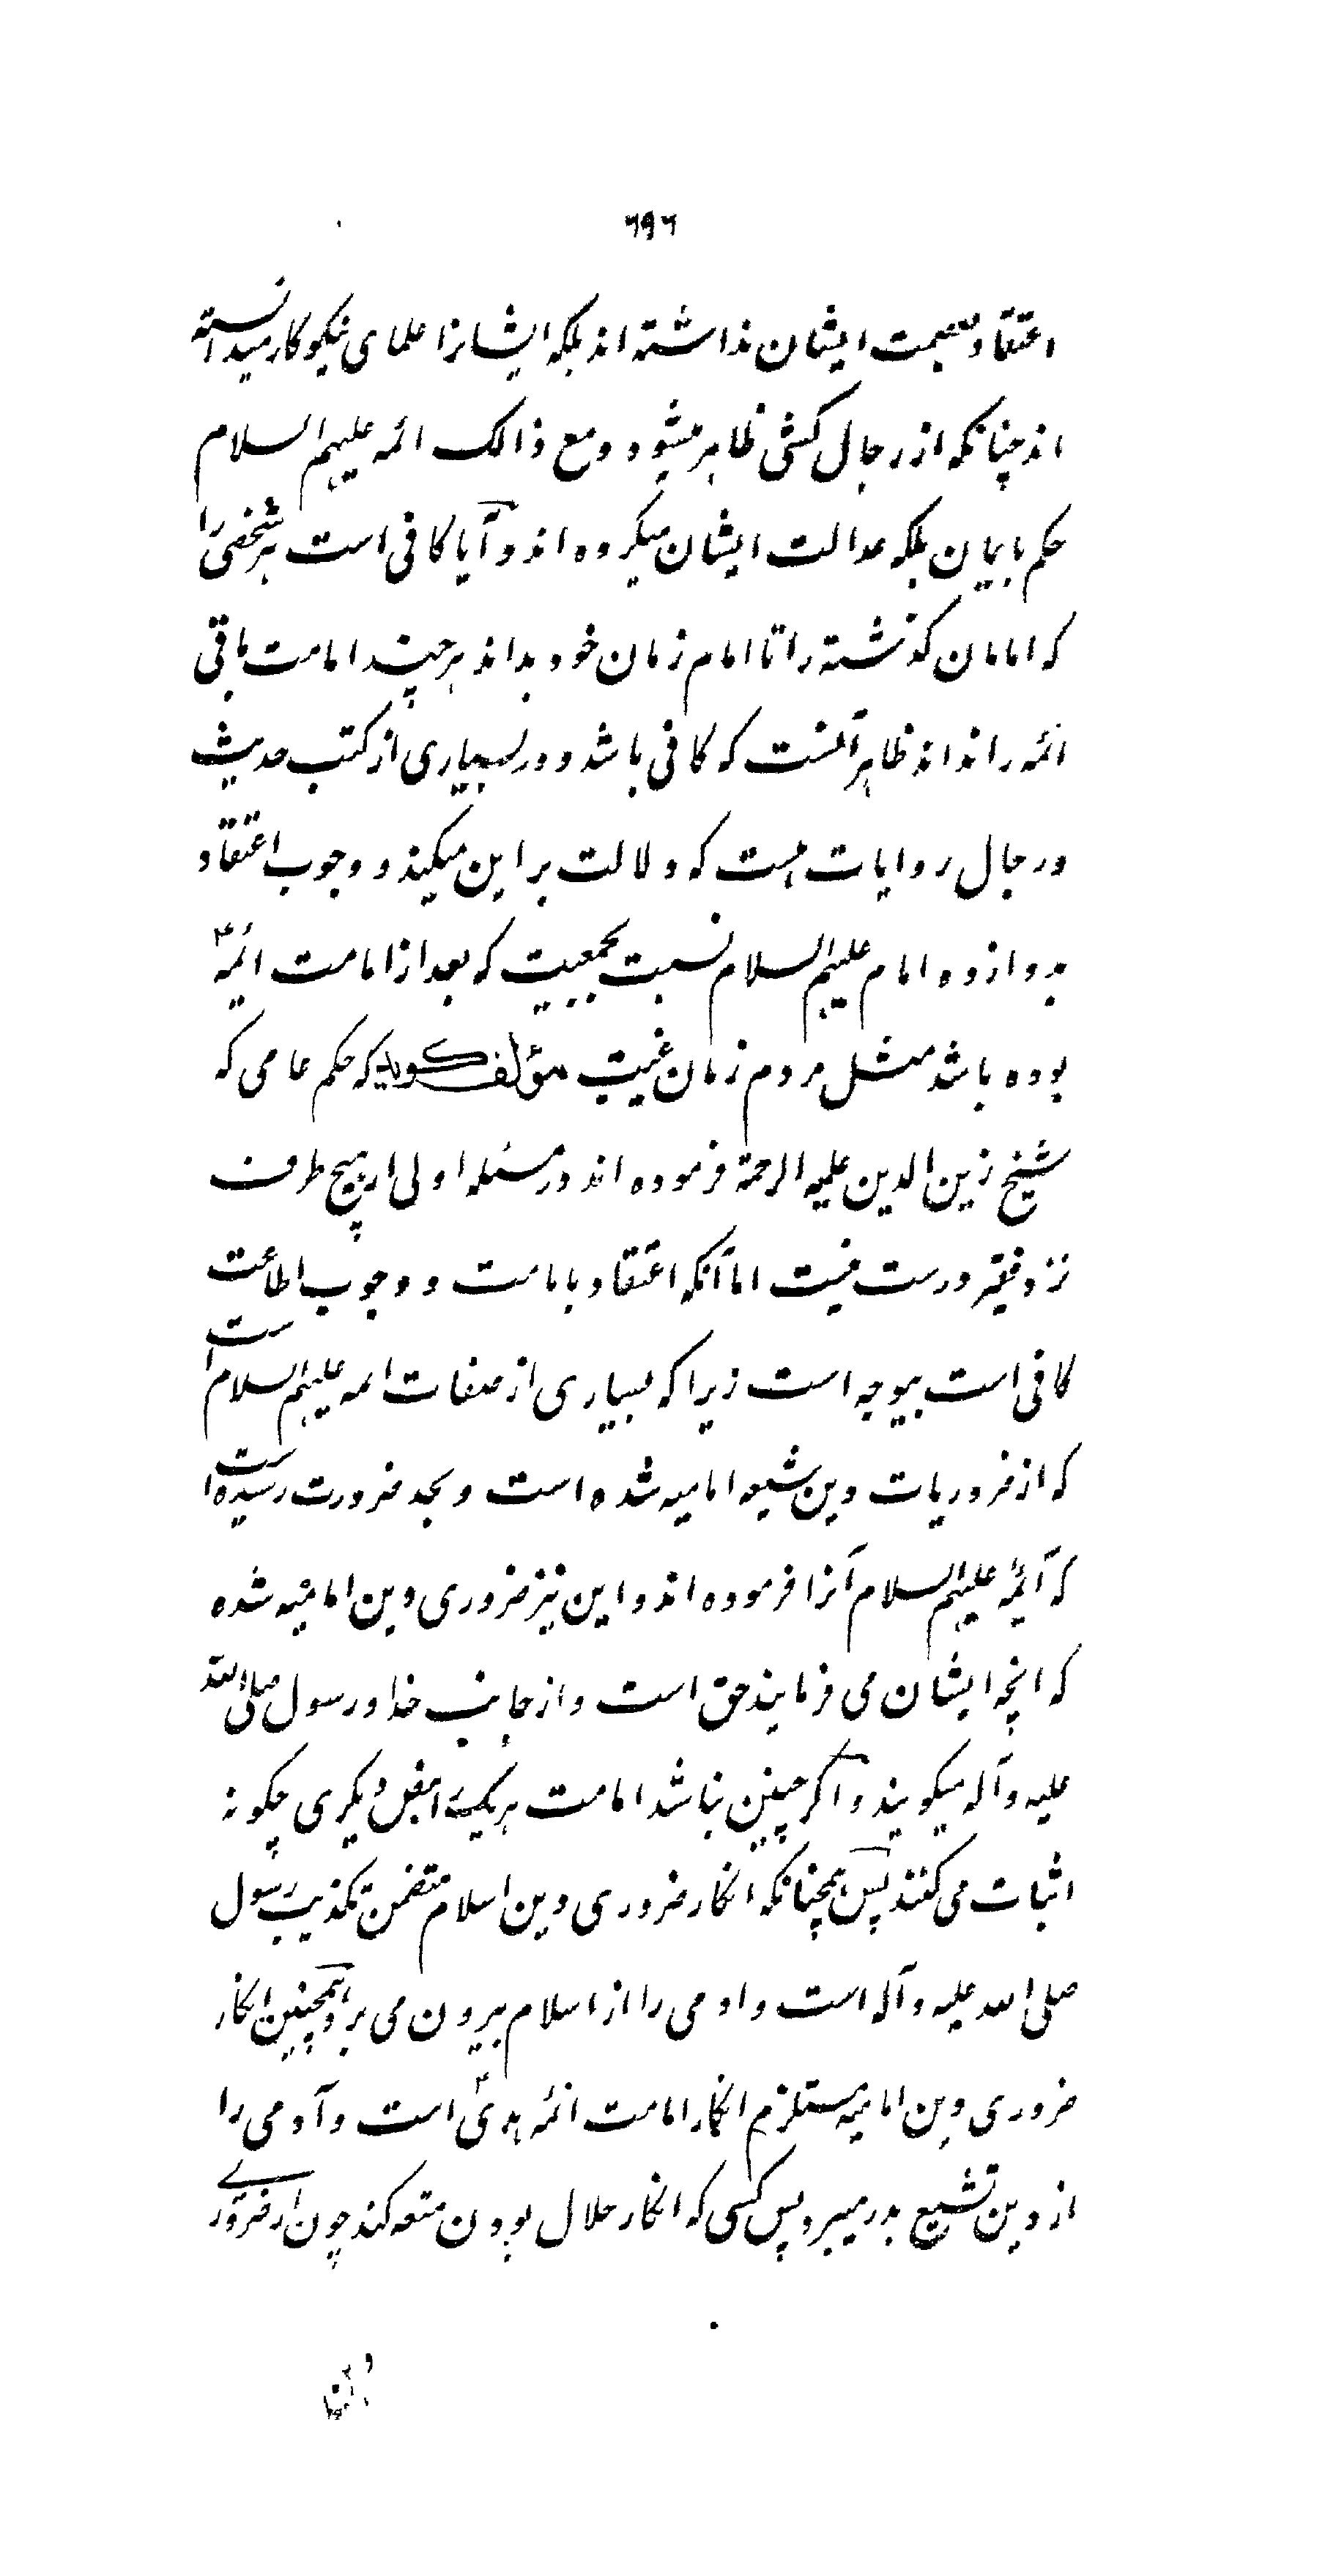 ٦٩٦
اعتقاد بعصمت ایشان نداشته اند بلکه ایشانرا علمای نیکو کار میدانسته
اند چنانکه از رجال کشی ظاهر میشود و مع ذالک ائمه علیهم السلام
حکم بایمان بلکه عدالت ایشان میکرده اند و آیا کافی است هر شخصی را
که امامان گذشته را تا امام زمان خود بداند هر چند امامت باقی
ائمه را نداند ظاهر آنست که کافی باشد و در بسیاری از کتب حدیث
و رجال روایات هست که دلالت بر این میکند و وجوب اعتقاد
بدوازده امام علیهم السلام نسبت بجمعیت که بعد از امامت ائمهٴ
بوده باشد مثل مردم زمان غیبت مؤلف گوید که حکم عامی که
شیخ زین الدین علیه الرحمة فرموده اند در مسئله اولی از هیچ طرف
نزد فقیر درست نیست اما آنکه اعتقاد بامامت و وجوب اطاعت
کافی است بیوجه است زیرا که بسیاری از صفات ائمه علیهم السلام است
که از ضروریات دین شیعه امامیه شده است و بحد ضرورت رسیده است
که آئمه علیهم السلام آنرا فرموده اند و این نیز ضروری دین امامیه شده
که انچه ایشان می فرمایند حق است و از جانب خدا و رسول صلی الله
علیه و آله میگویند و اگر چنین نباشد امامت هر یکے را بنقل دیگری چگونه
اثبات می کنند پس همچنانکه انکار ضروری دین اسلام متضمن تکذیب رسول
صلی الله علیه و آله است و ادمی را از اسلام بیرون می برد و همچنین انکار
ضروری دین امامیه مستلزم انکار امامت ائمه هدیٰ است و آدمی را
از دین تشیع بدر میبرد پس کسی که انکار حلال بودن متعه کند چون از ضروری